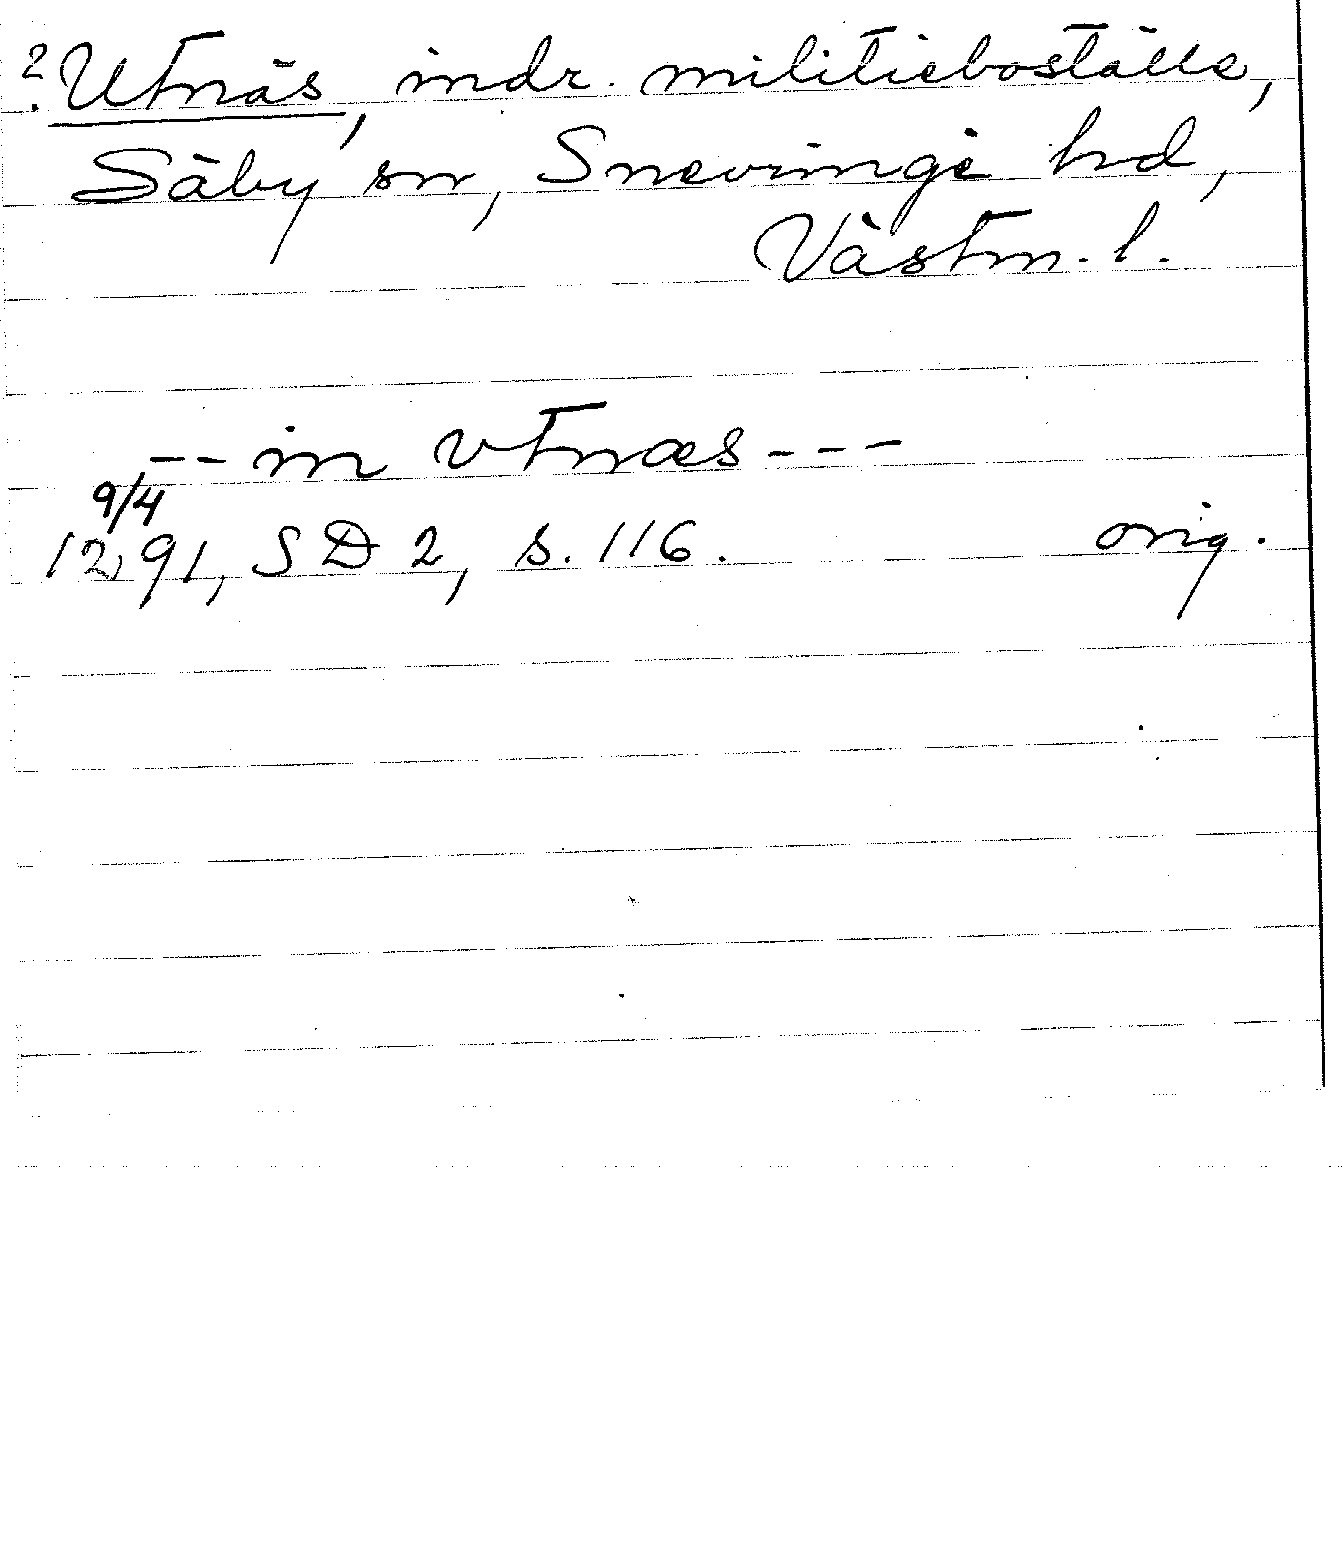 ? Utnäs, indr. militieboställe,
Säby sn, Snevringe hd,
Västm. l.
-- in vtnæs ---
9/4
1291, SD 2, s. 116. orig.